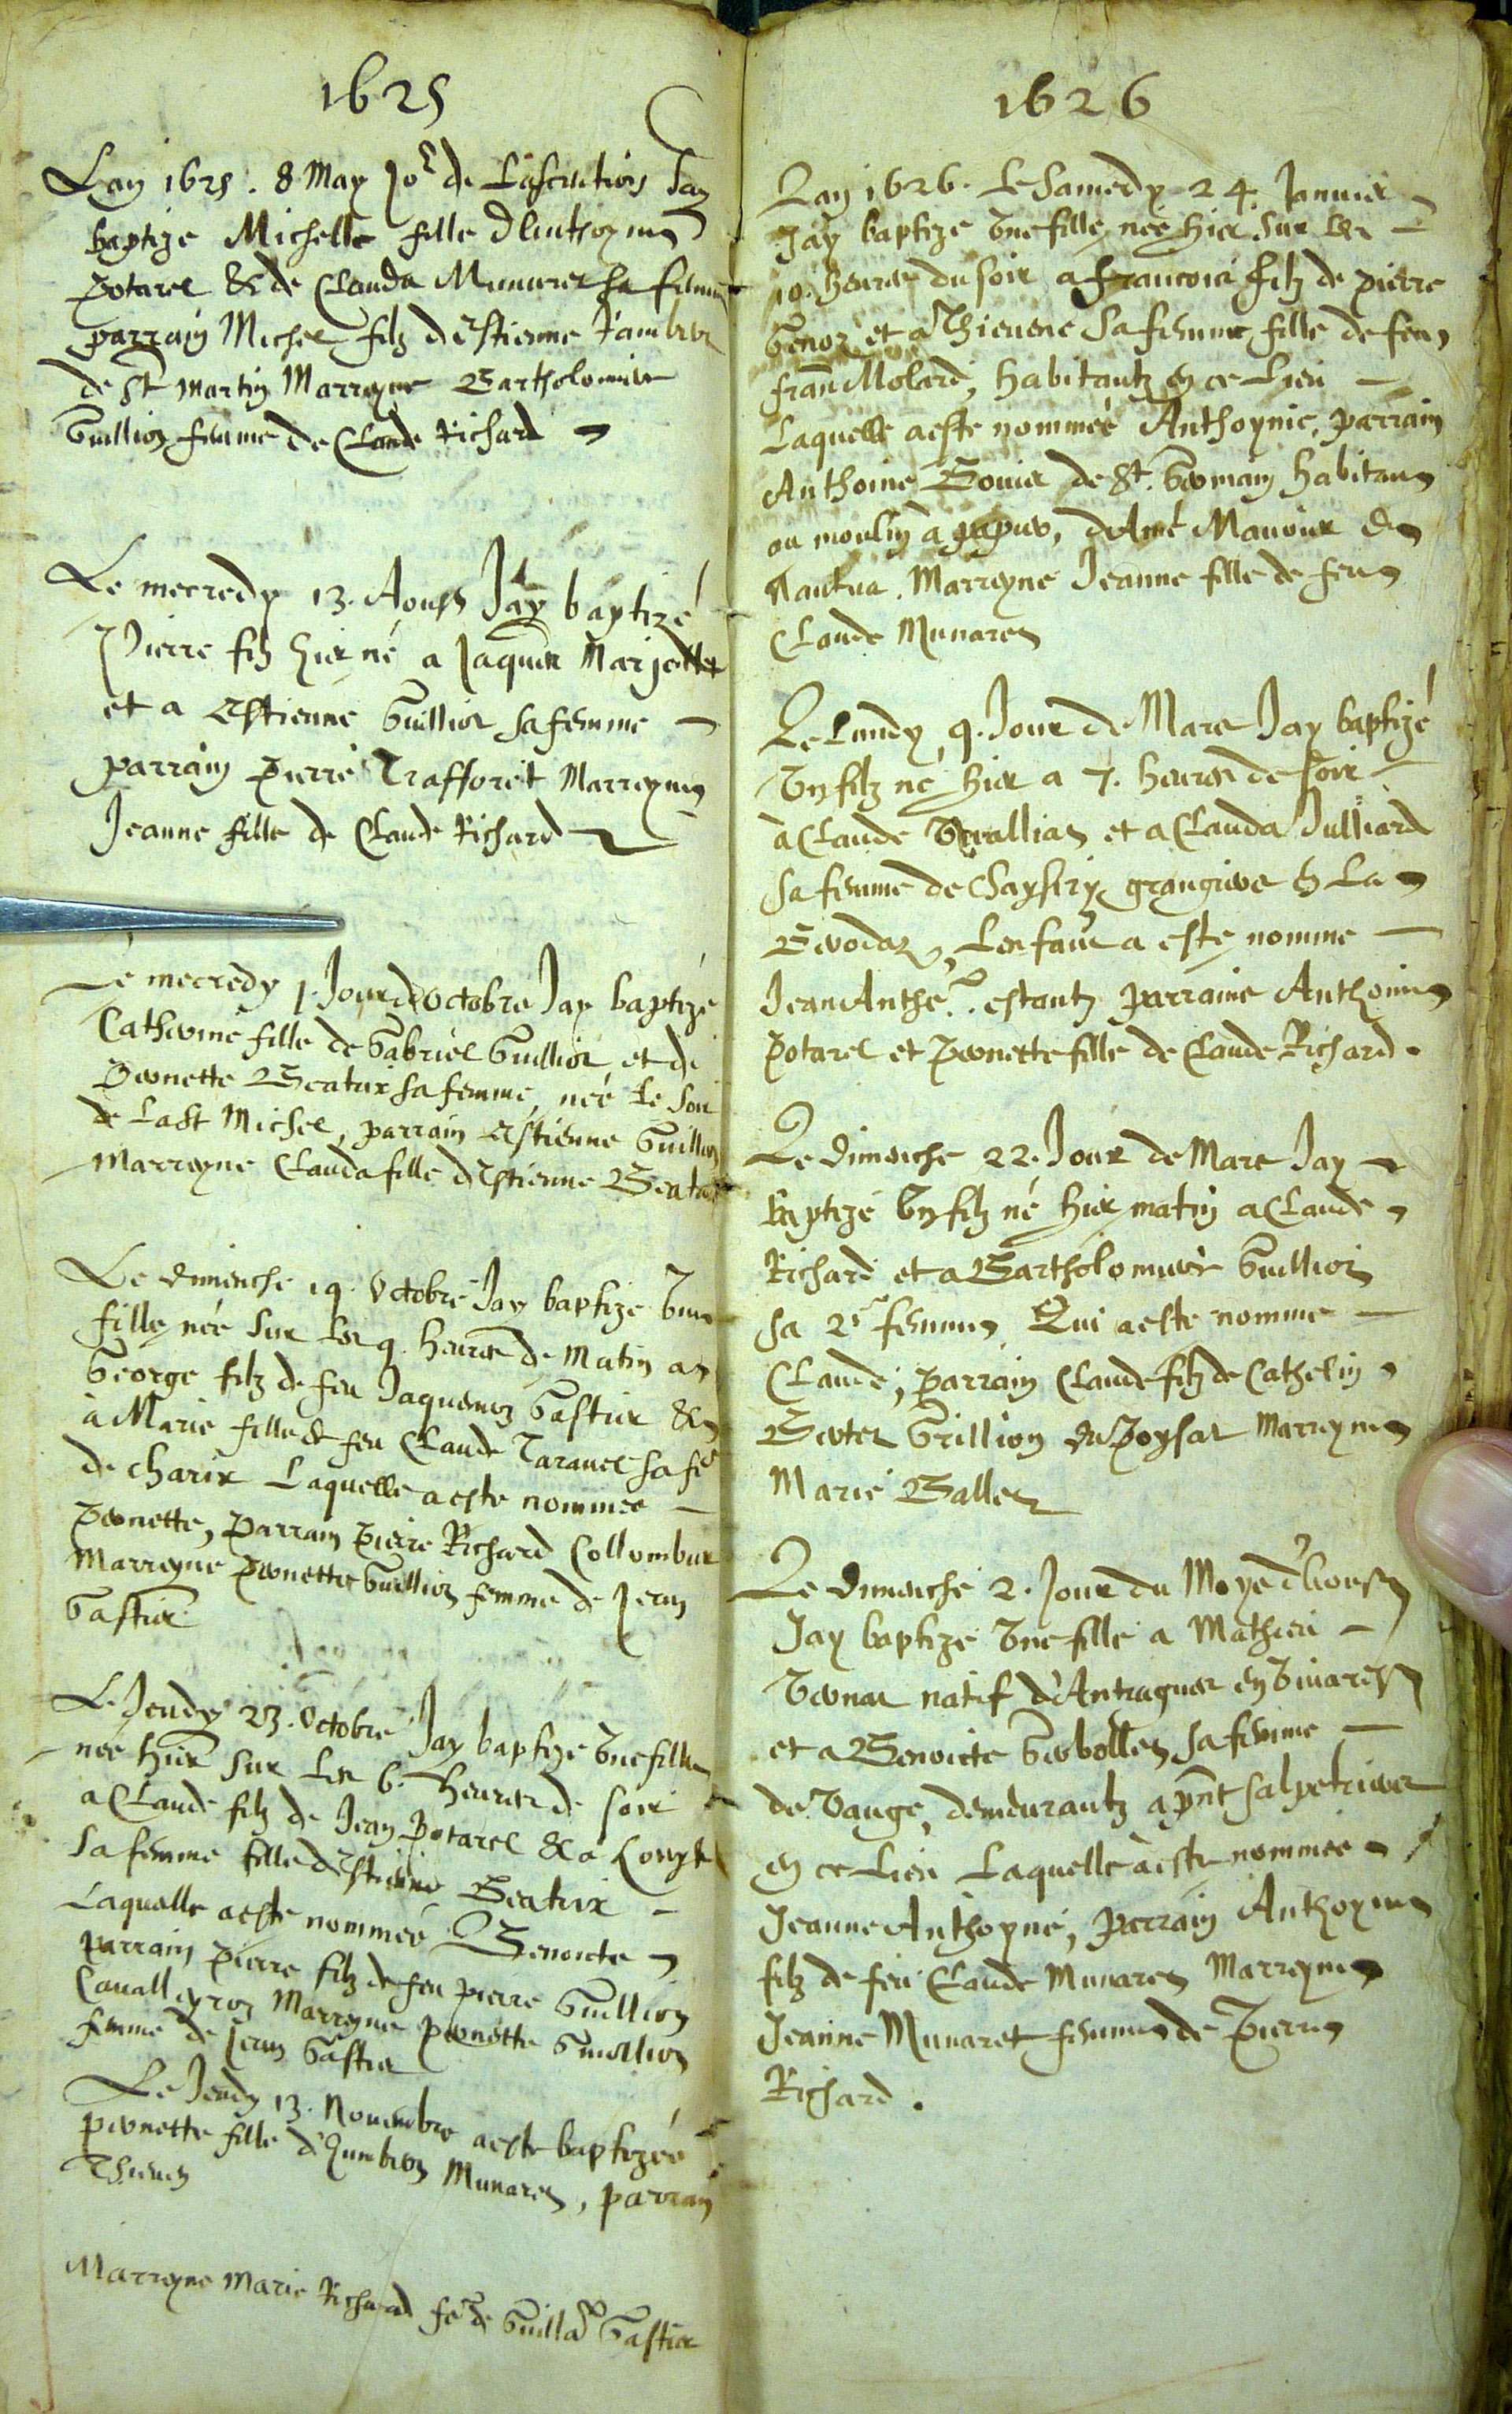 1625
Lan 1625. 8 May Jor de Lascention Jay
baptize Michelle fille dAnthoyne
Potarel & de Clauda Munaret sa femme
parrain Michel filz d'Estienne
de St Martin Marreyne Bartholomiere
Guillion femme de Claude Richard
Le mecredy 13. Aoust Jay baptizé
Pierre filz hier né a Jaques Marjollet
et a Estienne Guillion sa femme
parrain Pierre Trafforet Marreyne
Jeanne fille de Claude Richard
Le mecredy 1. Jour d'Octobre Jay baptizé
Catherine fille de Gabriel Guillion et de
Pernette Beatrix sa femme, née Le soir
de La St Michel, parrain Estienne Guillion
Marreyne Clauda fille d'Estienne Beatrix
Le dimenche 19. Octobre Jay baptize Une
fille née sur Les 9. heures de Matin a
George filz de feu Jaquemoz Gastier &
à Marie fille de feu Claude Taravel sa fe
de Charix Laquelle a este nommee
Pernette, Parrain Pierre Richard Collombier
Marreyne Pernette Guillion femme de Jean
Gastier
Le Jeudy 23. Octobre Jay baptize Une fille
née hier sur Les 6. heures de soir
a Claude filz de Jean Potarel & a Louyse
sa femme fille d'Estienne Beatrix
Laquelle a este nommée Benoicte
parrain Pierre filz de feu Pierre Guillion
Cavalleyron Marreyne Pernette Guillion
femme de Jean Gastier
Le Jeudy 13. Novembre a este baptizée
Pernette fille d'Humbert Munaret, parrain
Marreyne Marie Richard fe de Guillae Gastier
1626
Lan 1626. Le Samedy 24. Janvier
Jay baptize Une fille née hier sur les
10. heures du soir a Francois filz de Pierre
Genoz et a Thievene sa femme fille de feu
Fran Molard, habitantz en ce Lieu
Laquelle a este nommée Anthoynie, Parrain
Anthoine Bouvier de St. Germain habitant
au moulin à papier, d'Amé Manoire de
Nantua. Marreyne Jeanne fille de feu
Claude Munaret
Le Lundy, 9. Jour de Mars Jay baptizé
Un filz né hier a 7. heures de soir
à Claude Verallias et a Clauda Julliard
sa femme de grangiers en La
Lenfant a este nomme
Jean Anthe. estantz Parrains Anthoine
Potarel et Pernette fille de Claude Richard.
Le Dimenche 22. Jour de Mars Jay
baptizé Un filz né hier matin a Claude
Richard et a Bartholomiere Guillion
sa 2e femme Qui a este nomme
Claude, Parrain Claude filz de Cathelin
Grillion du Poysat Marreyne
Marie Ballet
Le Dimenche 2. Jour du Moys d'Aoust
Jay baptize Une fille a Mathieu
Vernat natif d'Antragues en Vivarest
et a Benoicte Gerbollet sa femme
de Vauge, demeurantz a pnt salpetriers
en ce Lieu Laquelle à este nommee
Jeanne Anthoyne, Parrain Anthoyne
filz de feu Claude Munaret Marreyne
Jeanne Munaret femme de Pierre
Richard.